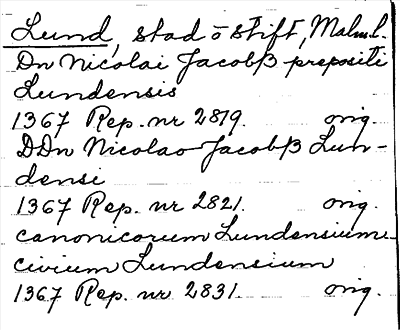 Lund, stad o stift, Malm.l.
Dn Nicolai Jacobß prepositi
Lundensis
1367 Rep. nr 2819. orig.
DDn Nicolao Jacobß Lun-
densi
1367 Rep. nr 2821. orig.
canonicorum Lundensium -
civium Lundensium
1367 Rep. nr 2831. orig.